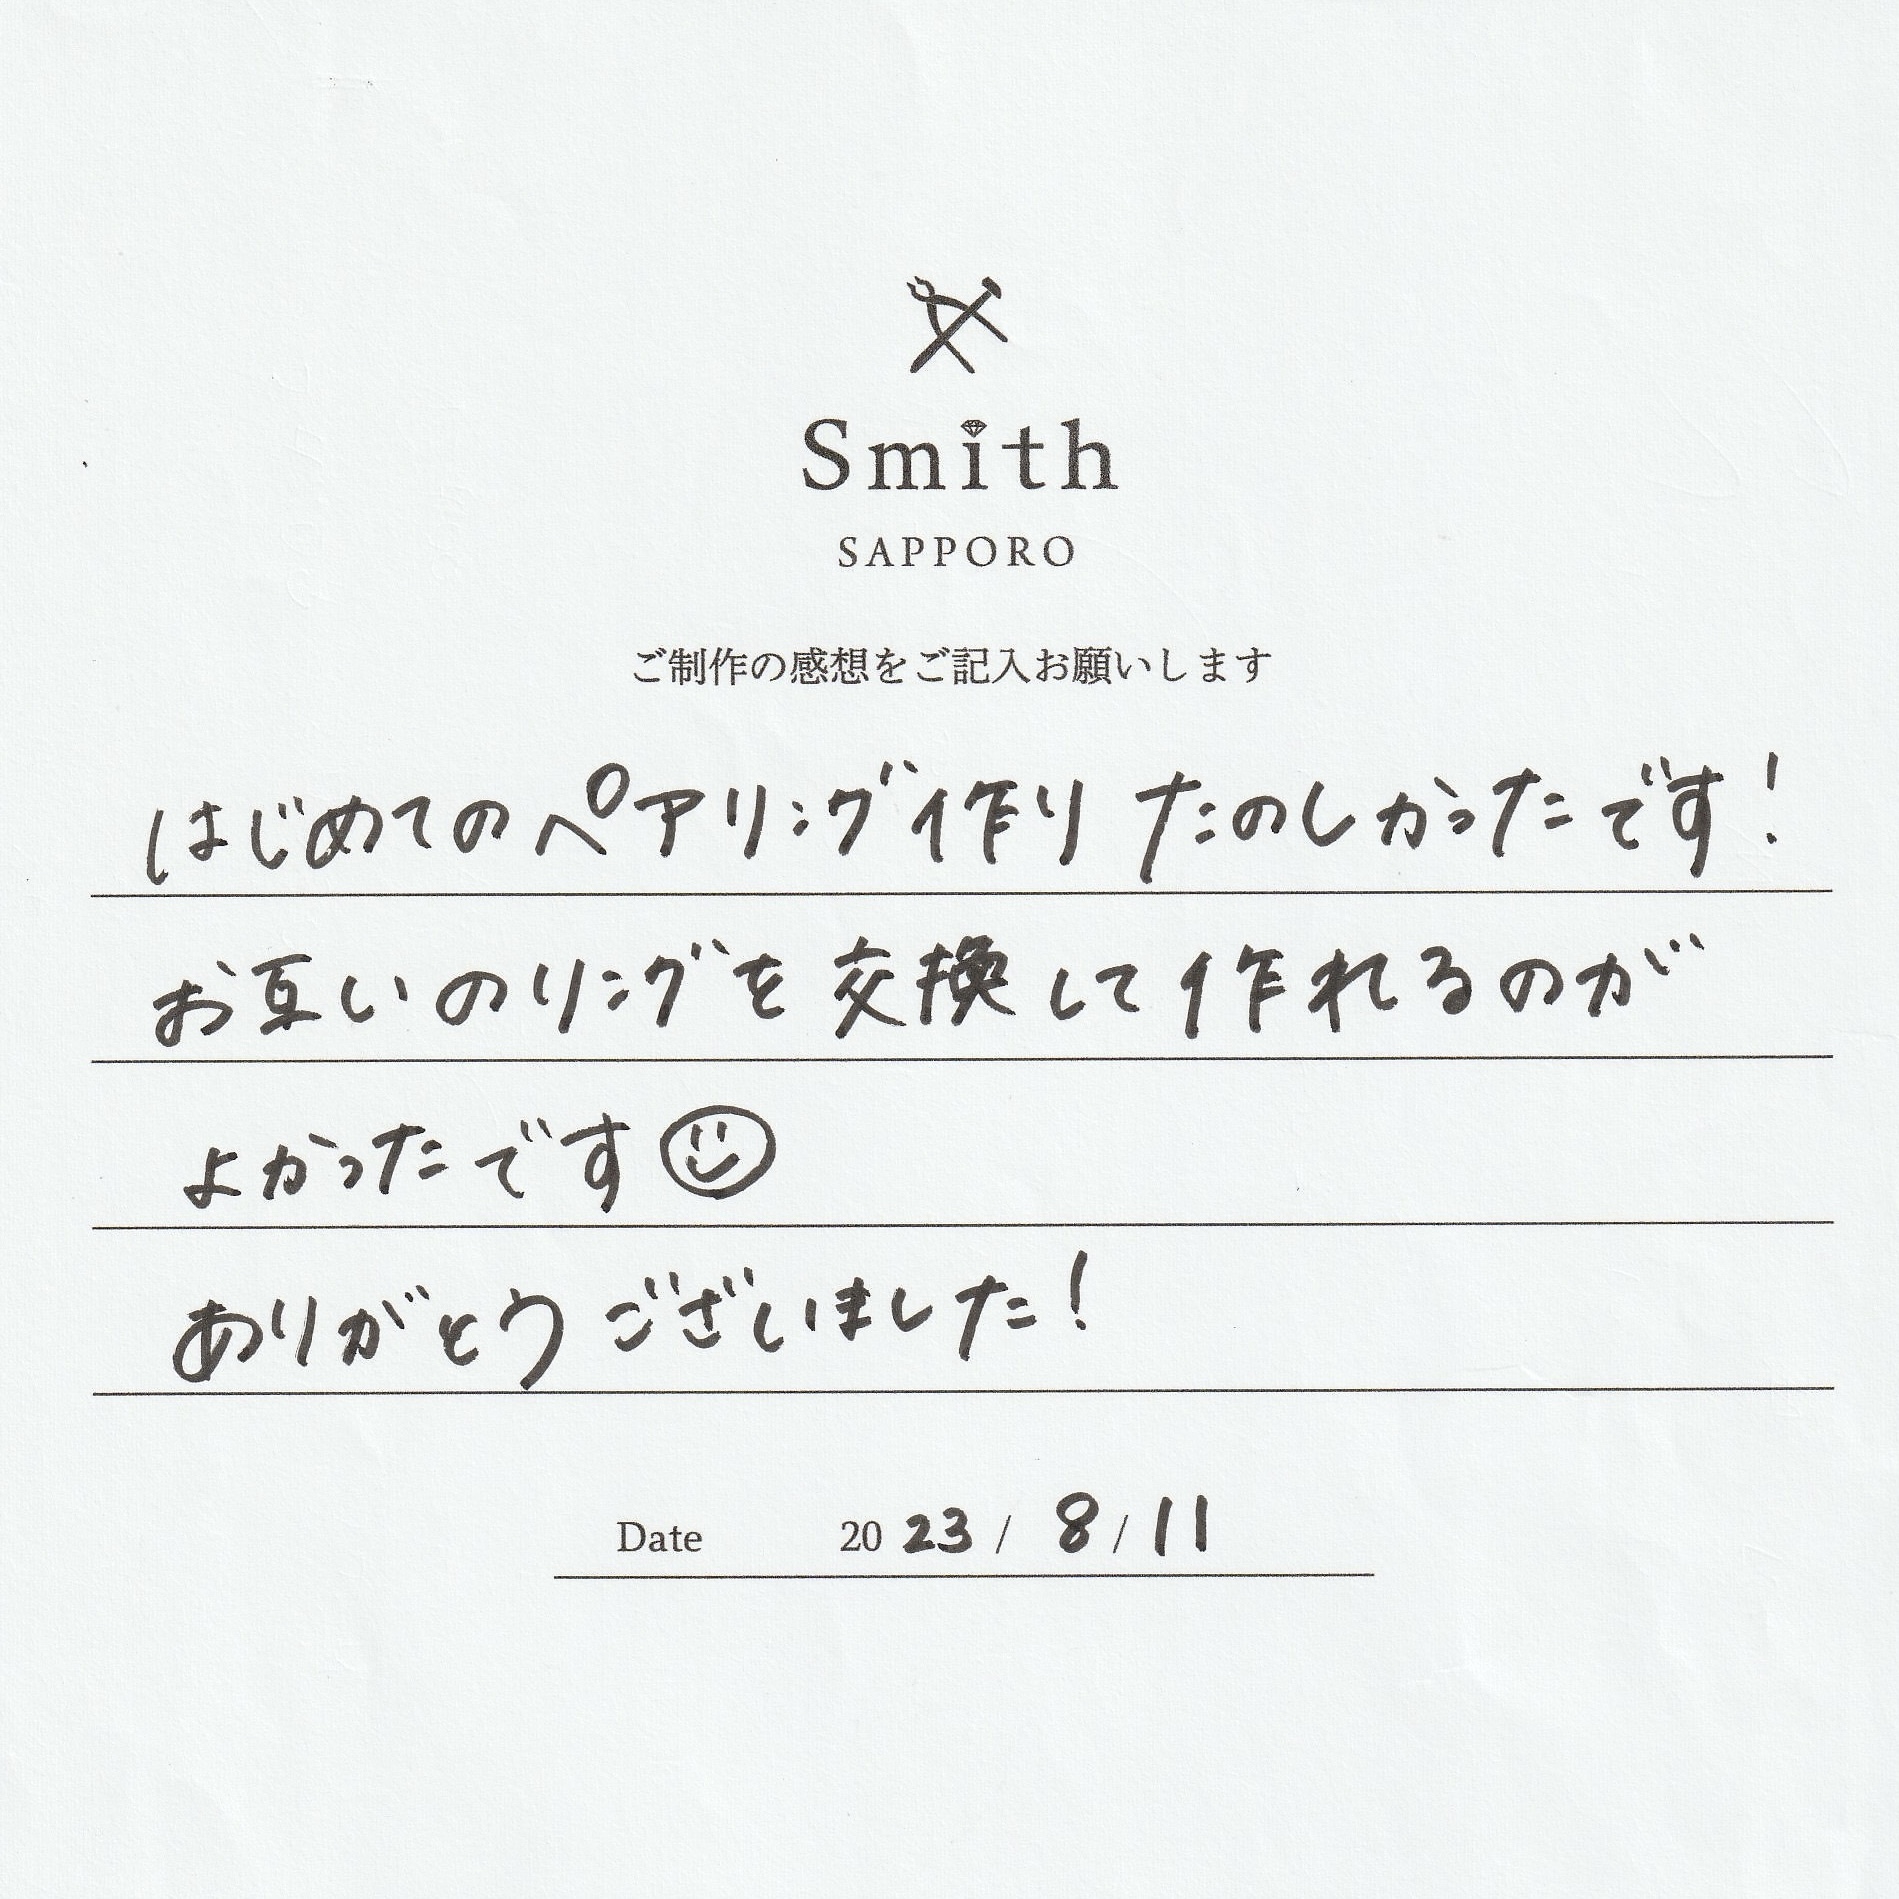 Smith
SAPPORO
ご制作の感想をご記入お願いします
はじめてのペアリング作り たのしかったです!
お互いのリングを交換して作れるのが
よかったです
ありがとうございました!
Date 2023 / 8 / 11